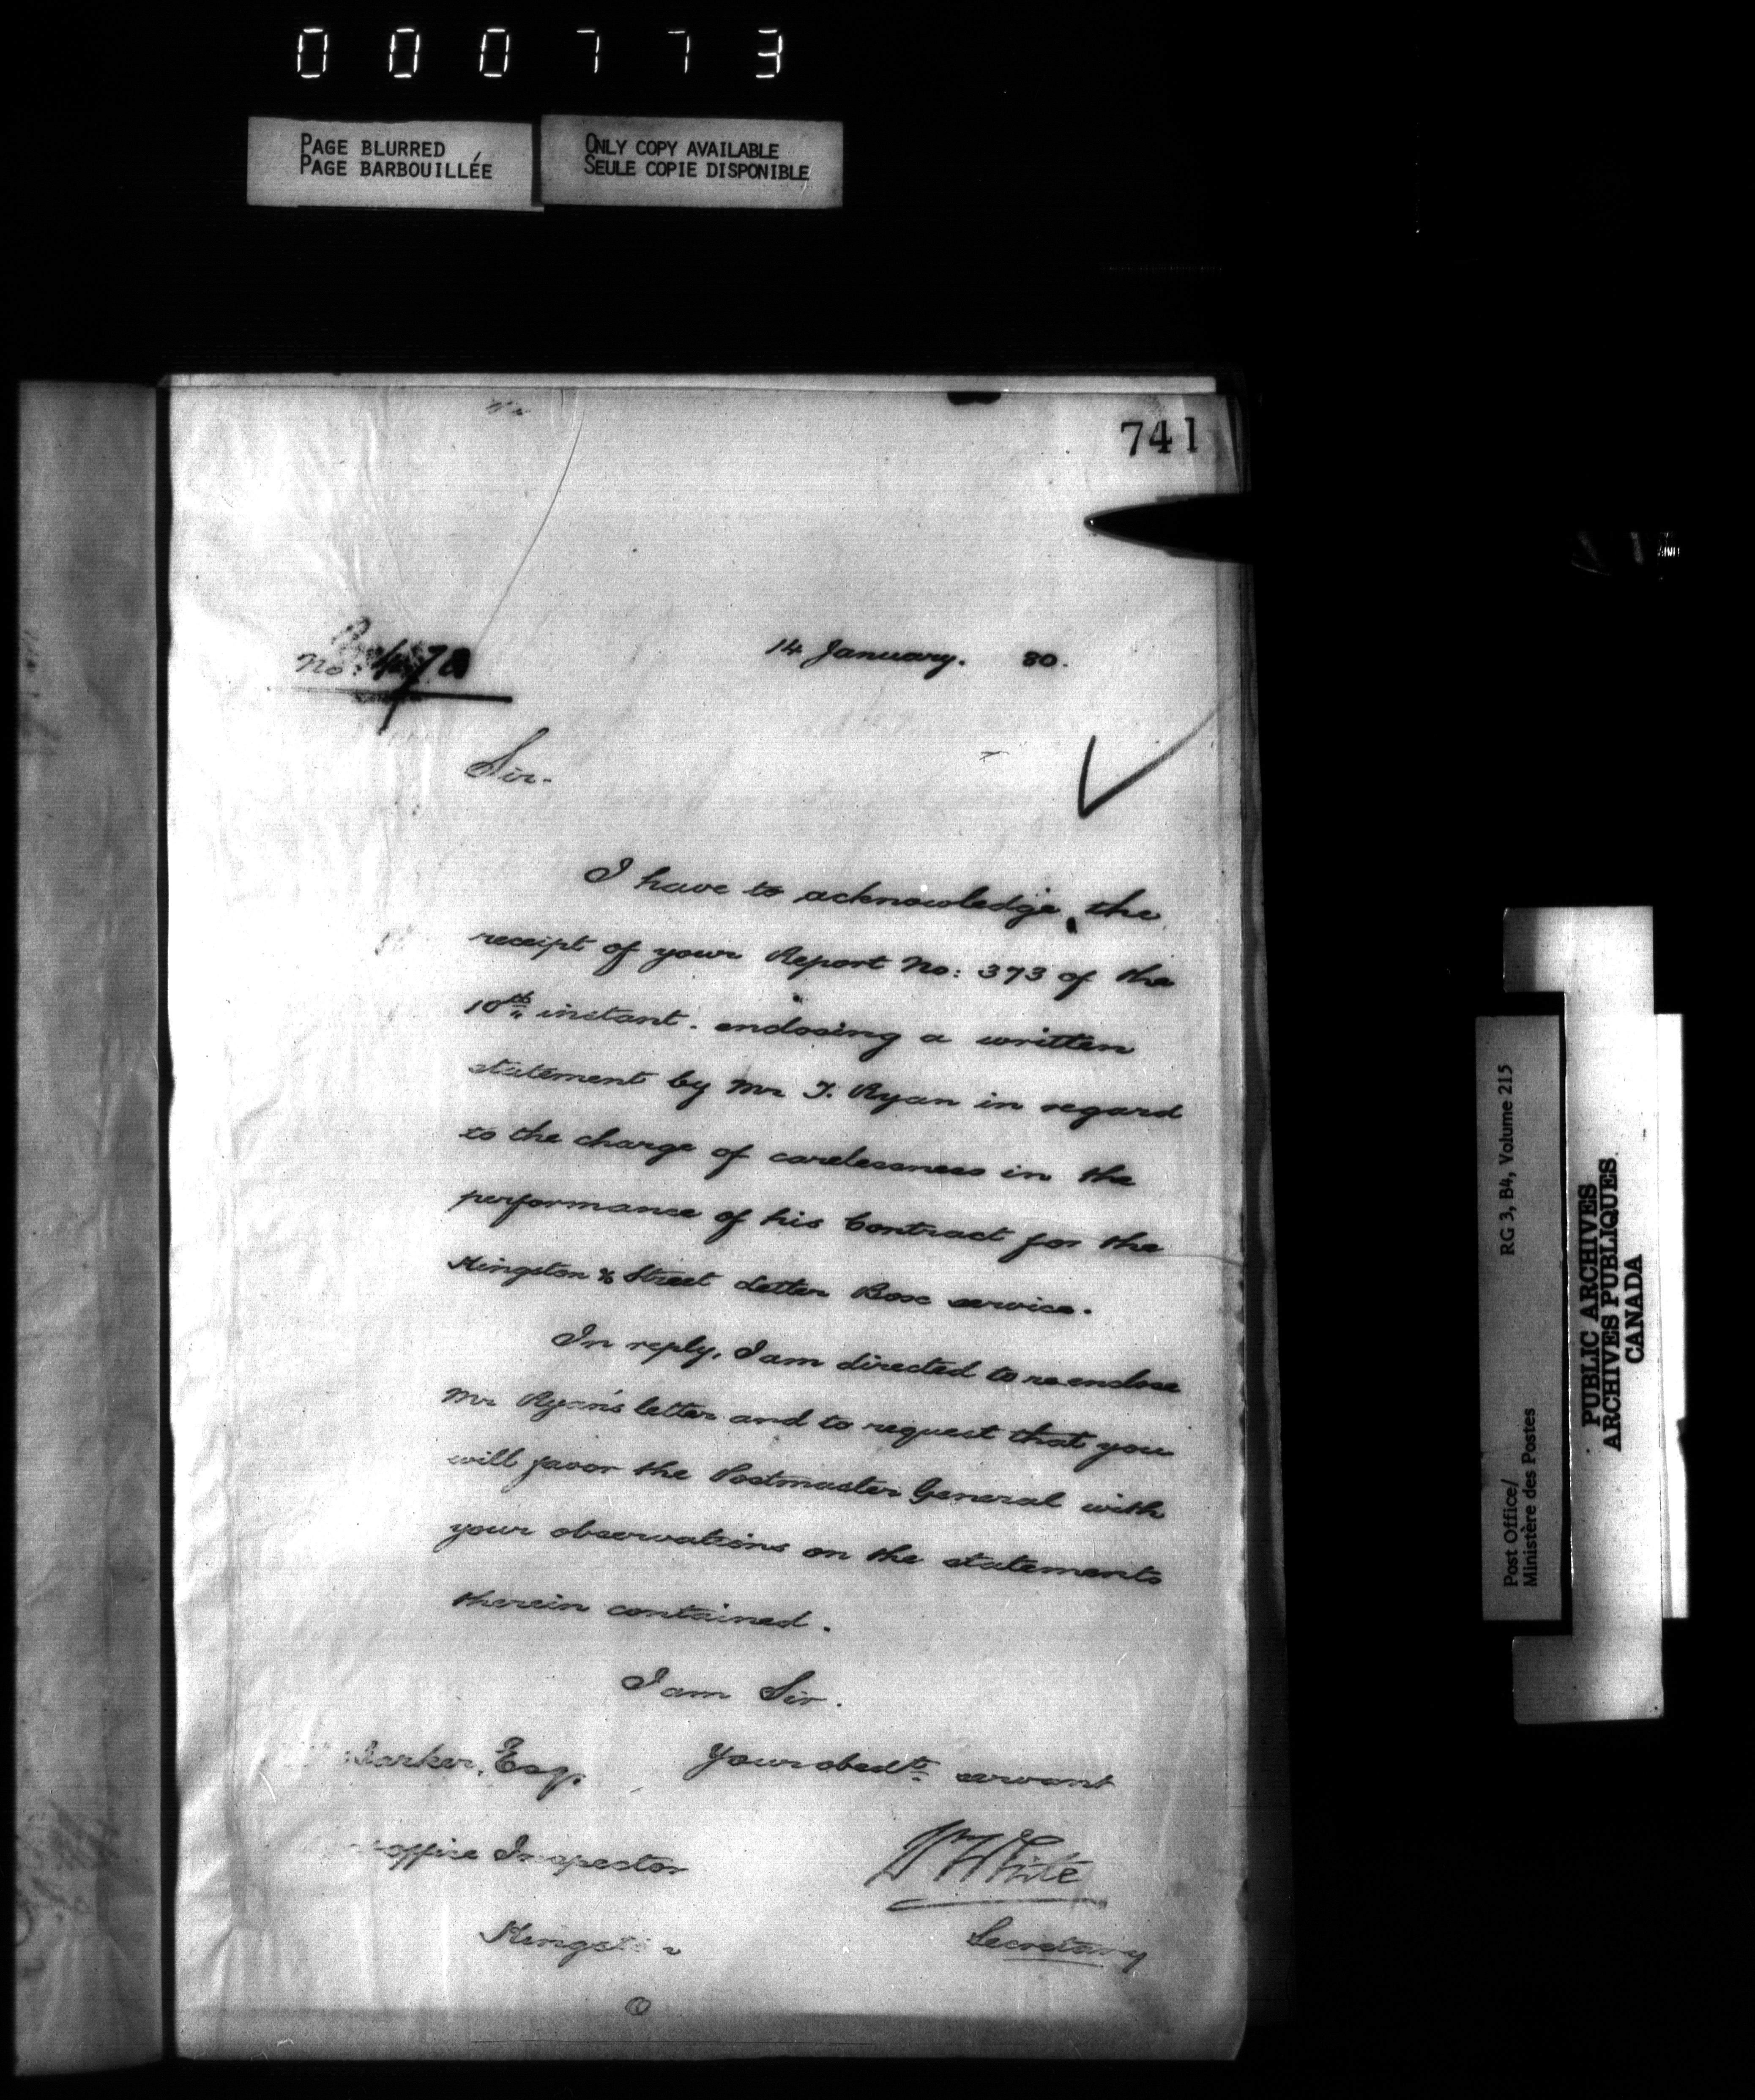 000773
PAGE BLURRED
PAGE BARBOUILLÉE
ONLY COPY AVAILABLE
SEULE COPIE DISPONIBLE
741
No:
14 January. 80.
Sir.
I have to acknowledge the
receipt of your Report No: 373 of the
10th instant. enclosing a written
statement by Mr T. Ryan in regard
to the charge of carelessness in the
performance of his Contract for the
Kingston & Street Letter Box service.
In reply, I am directed to re-enclose
Mr Ryan's letter and to request that you
will favor the Postmaster General with
your observations on the statements
therein contained.
I am Sir.
Your obedt servant
Barker, Esq.
office Inspector
Kingston
W White
Secretary
RG 3, B4, Volume 215
Post Office/
Ministère des Postes
PUBLIC ARCHIVES
ARCHIVES PUBLIQUES
CANADA